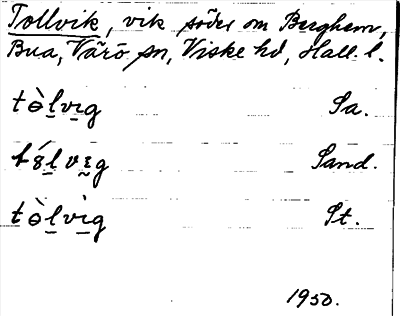 Tollvik, vik söder om Berghem,
Bua, Värö sn, Viske hd, Hall. l.
tò̱lvi̱g Sa.
Sand.
tò̱lvi̱g St.
1950.